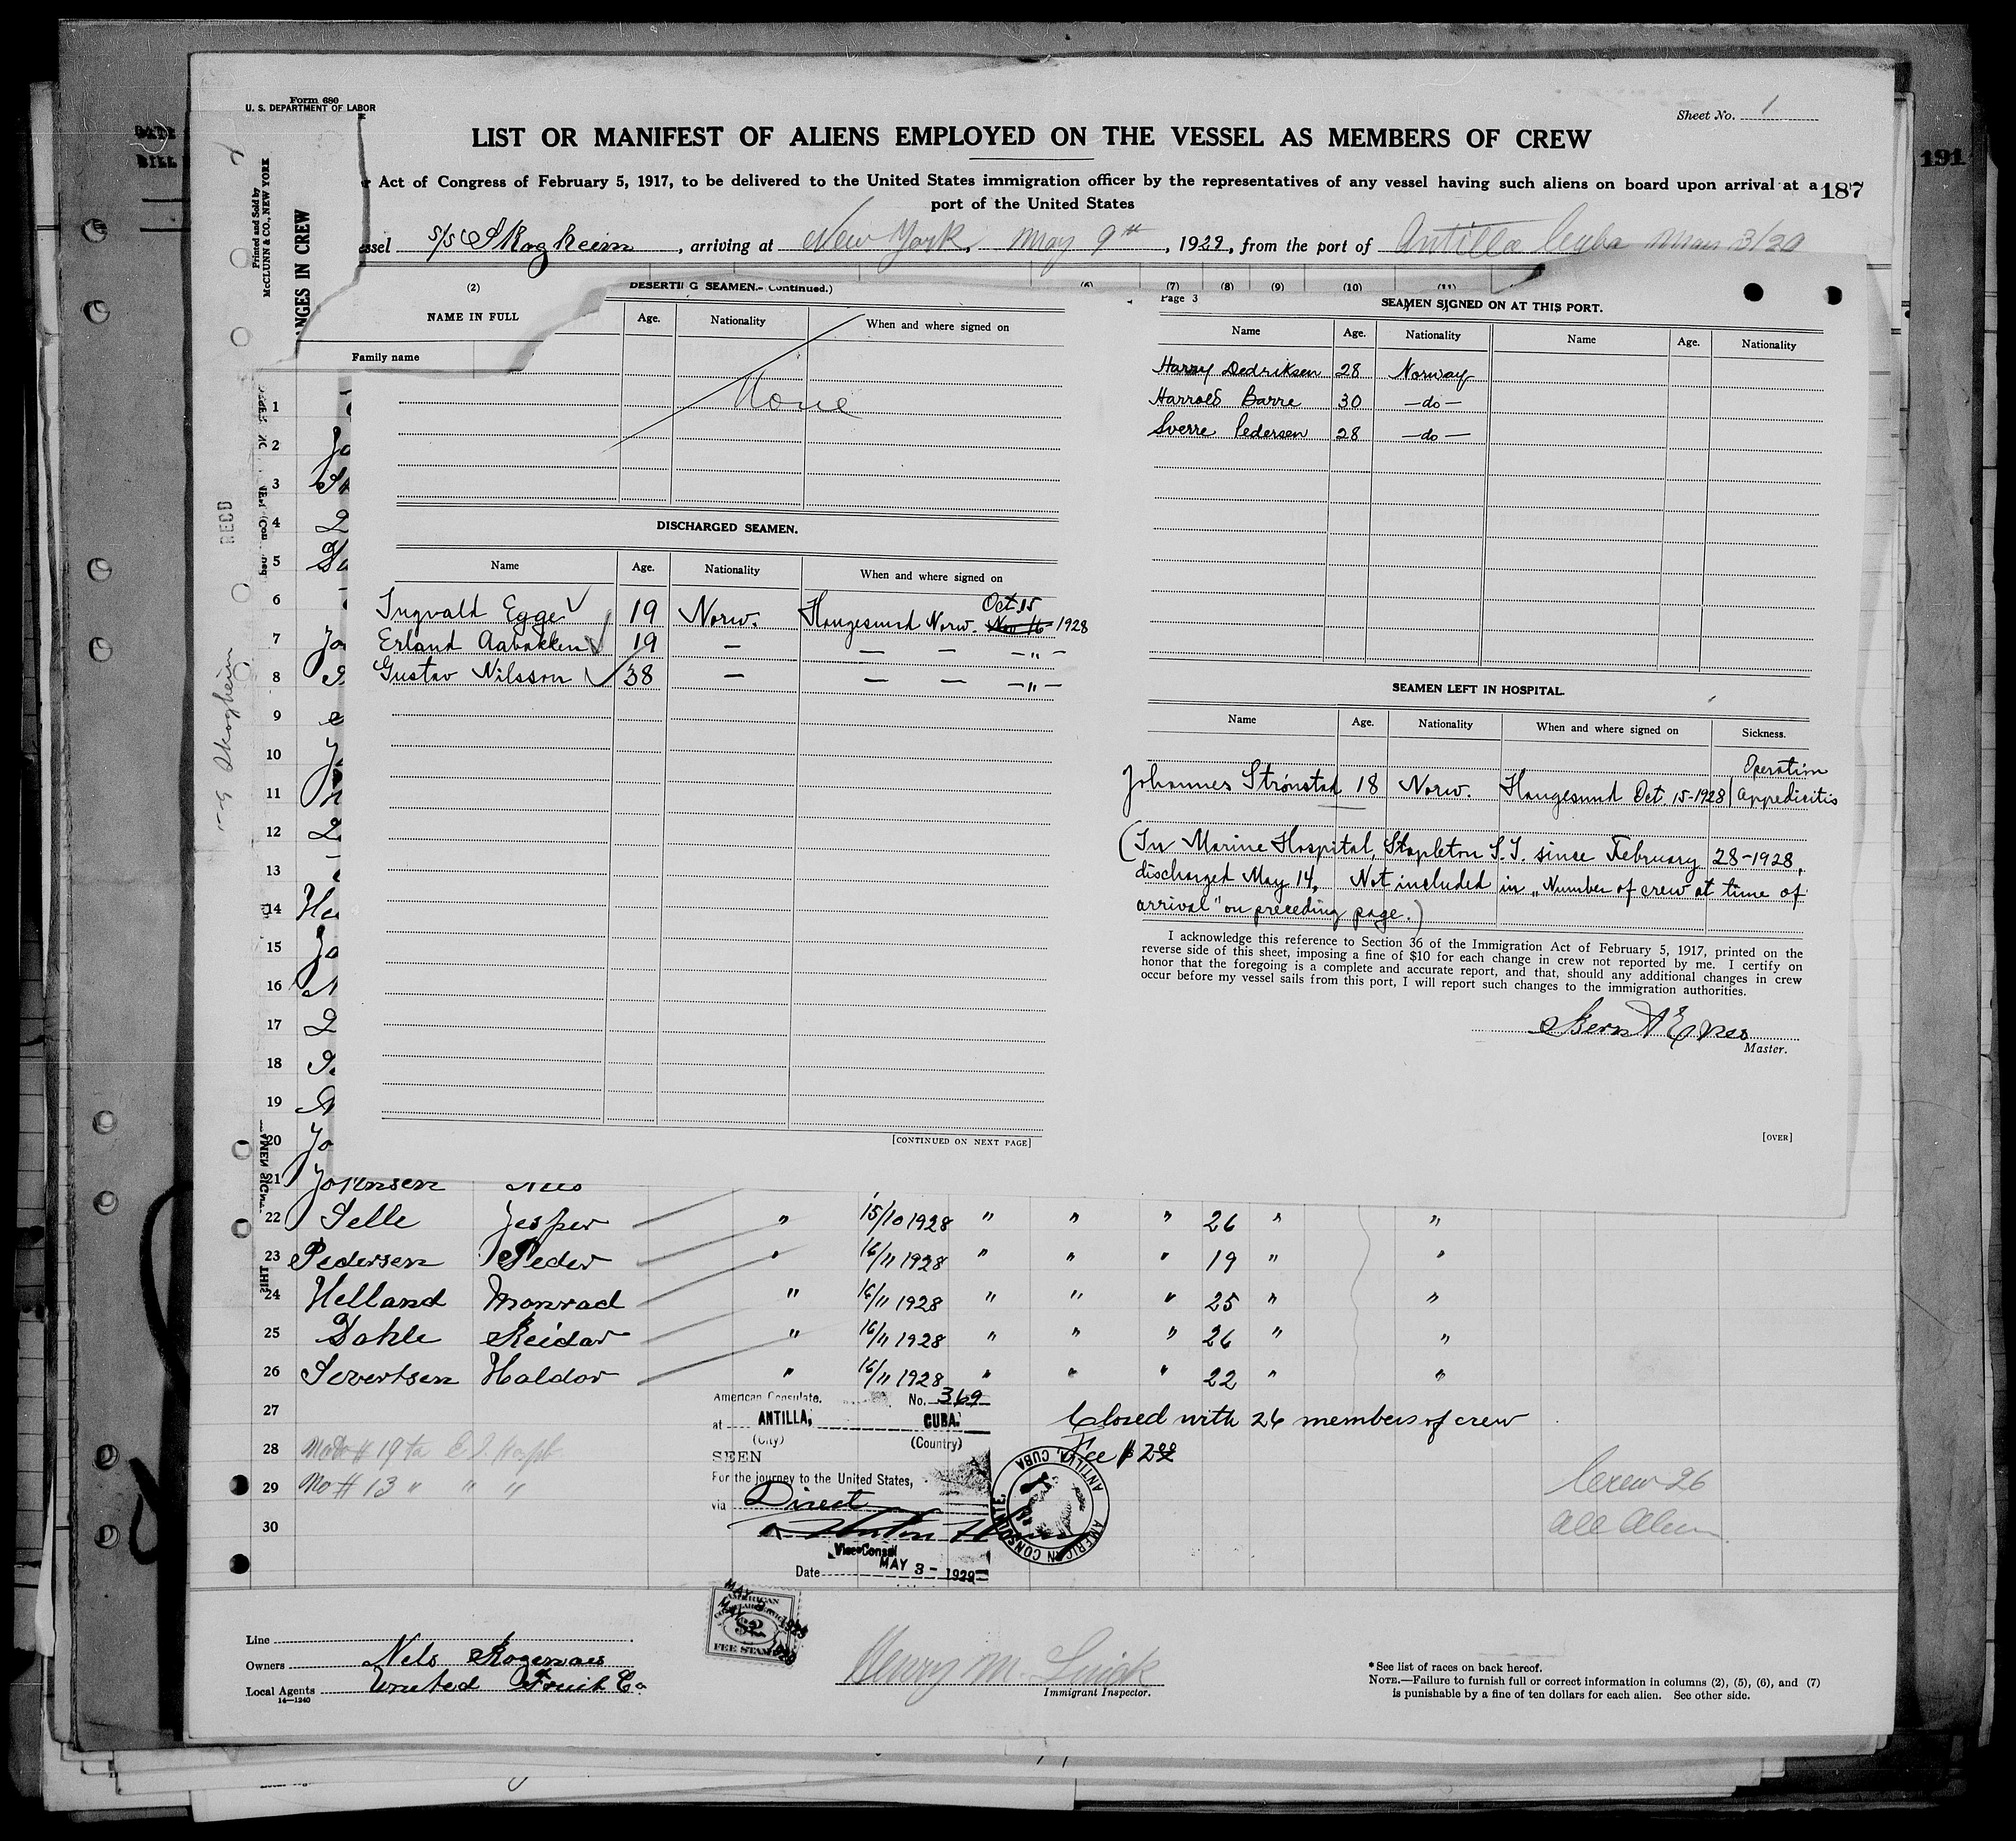 Form 680
U. S. DEPARTMENT OF LABOR
Sheet No. 1
LIST OR MANIFEST OF ALIENS EMPLOYED ON THE VESSEL AS MEMBERS OF CREW
191
Act of Congress of February 5, 1917, to be delivered to the United States immigration officer by the representatives of any vessel having such aliens on board upon arrival at a
187
port of the United States
ssel S/S Skogheim, arriving at New York, May 9th, 1929, from the port of Antilla Cuba
Printed and Sold by
McCLUNN & CO., NEW YORK
ANGES IN CREW
RECD
Skogheim
(2) (6) (7) (8) (9) (10) (11)
NAME IN FULL
Family name
DESERTING SEAMEN.- Continued.)
Age. Nationality When and where signed on
None
DISCHARGED SEAMEN.
Name Age. Nationality When and where signed on
Ingvald Egge 19 Norw. Haugesund Norw. Oct 15 Nov 16 1928
Erland Aabakken 19 — — — —"—
Gustav Nilsson 38 — — — —"—
[CONTINUED ON NEXT PAGE]
Page 3
SEAMEN SIGNED ON AT THIS PORT.
Name Age. Nationality Name Age. Nationality
Harry Dedriksen 28 Norway
Harrold Barre 30 —do—
Sverre Pedersen 28 —do—
SEAMEN LEFT IN HOSPITAL.
Name Age. Nationality When and where signed on Sickness.
Operation
Johannes Strönstad 18 Norw. Haugesund Oct 15-1928 Appedicitis
(In Marine Hospital, Stapleton S.I. since February 28-1928,
discharged May 14, Not included in „Number of crew at time of
arrival" on preceding page.)
I acknowledge this reference to Section 36 of the Immigration Act of February 5, 1917, printed on the
reverse side of this sheet, imposing a fine of $10 for each change in crew not reported by me. I certify on
honor that the foregoing is a complete and accurate report, and that, should any additional changes in crew
occur before my vessel sails from this port, I will report such changes to the immigration authorities.
Master.
[OVER]
1
2
3
4
5
6
7
8
9
10
11
12
13
14
15
16
17
18
19
20
21 Jorensen
22 Selle Jesper " 15/10 1928 " " " 26 " "
23 Pedersen Peder " 16/11 1928 " " " 19 " "
24 Helland Monrad " 16/11 1928 " " " 25 " "
25 Dahle Reidar " 16/11 1928 " " " 26 " "
26 Severtsen Haldor " 16/11 1928 " " " 22 " "
27
28
29 No # 13 " " "
30
American Consulate. No. 369
at ANTILLA, CUBA.
(City) (Country)
SEEN
For the journey to the United States,
via Direct
Vice Consul
Date MAY 3 - 1929
Closed with 26 members of crew
Fee $ 2.00
AMERICAN CONSULATE, ANTILLA, CUBA
Crew 26
All Alien
AMERICAN
$2
FEE STAMP
Line
Owners Nels Rogenaes
Local Agents United Fruit Co
14—1240
Henry M.
Immigrant Inspector.
* See list of races on back hereof.
NOTE.—Failure to furnish full or correct information in columns (2), (5), (6), and (7)
is punishable by a fine of ten dollars for each alien. See other side.